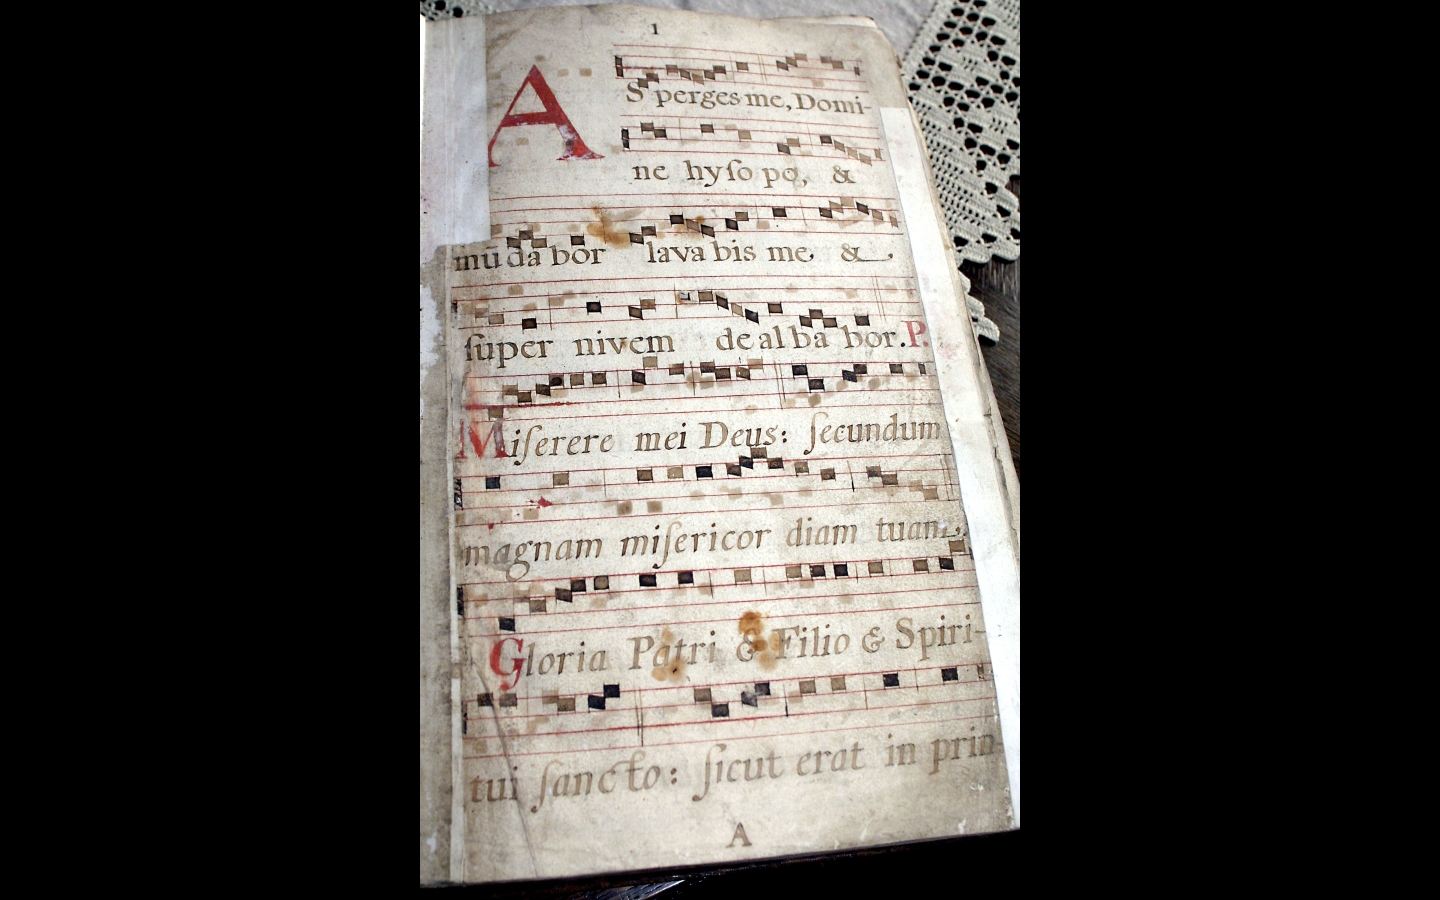 1
ASperges me, Domi-
ne hyſo po, &
mūda bor lava bis me, &
ſuper nivem de al ba bor. P.
Miſerere mei Deus: ſecundum
magnam miſericor diam tuam.
Gloria Patri & Filio & Spiri-
tui ſancto: ſicut erat in prin-
A